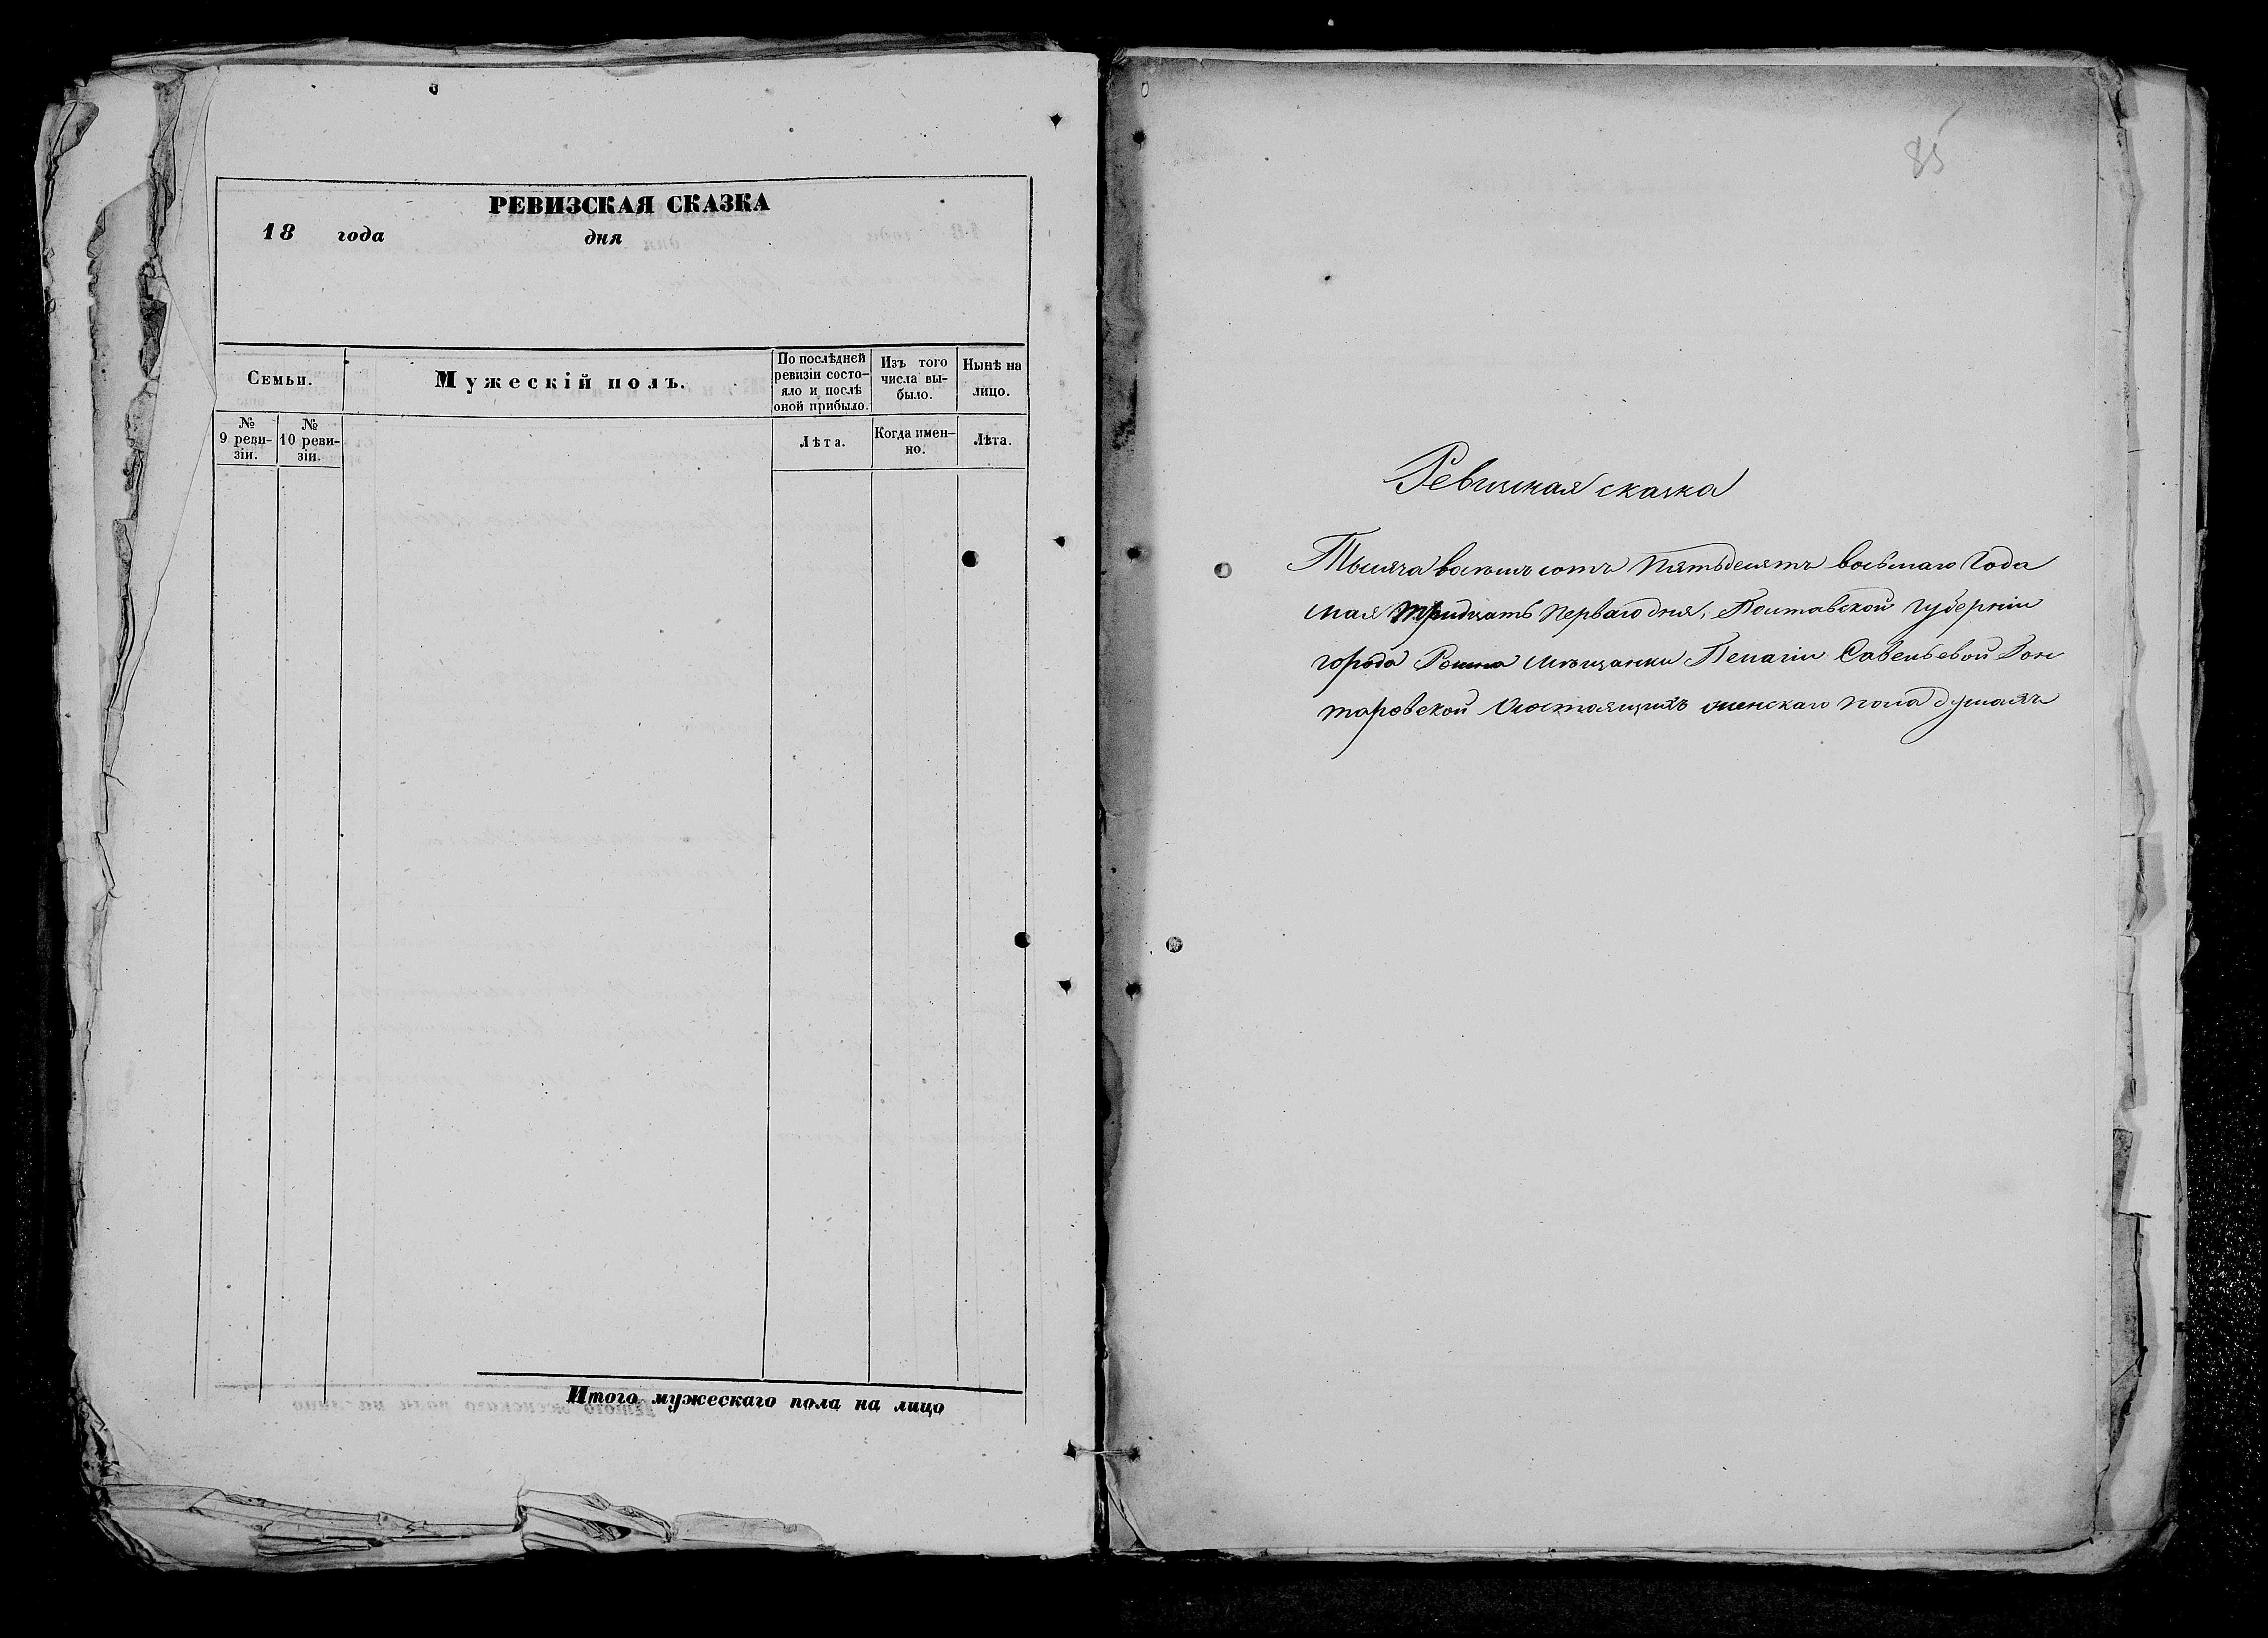 РЕВИЗСКАЯ СКАЗКА
18 года дня
Семьи.
Мужескій полъ.
По послѣдней ревизіи состо-
яло и послѣ
оной прибыло.
Изъ того
числа вы-
было.
Нынѣ на
лицо.
№
9 реви-
зіи.
№
10 реви-
зіи.
Лѣта.
Когда имен-
но.
Лѣта.
Итого мужескаго пола на лицо
85
Ревизская сказка
Тысяча восемь сотъ пятьдесятъ восьмаго года
мая тридцать перваго дня, Полтавской губерніи
города мѣщанки Пелагіи Савельевой Гон
таровской состоящихъ женскаго пола душахъ